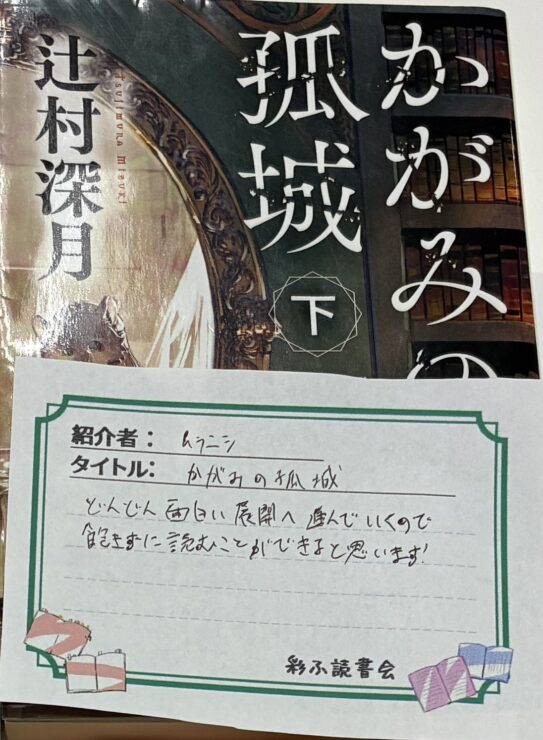 かがみの
孤城
下
辻村深月
Tsujimura Mizuki
紹介者: ムラニシ
タイトル: かがみの孤城
どんどん面白い展開へ進んでいくので
飽きずに読むことができると思います!
彩ふ読書会